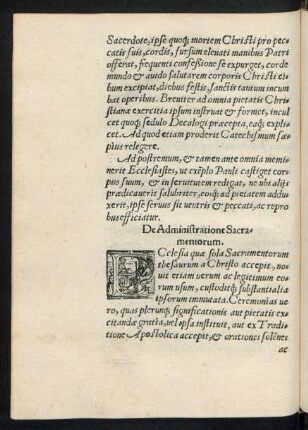 Sacerdote, ipse quoq; mortem Christi pro pec
catis suis, cordis, sursum eleuati manibus Patri
offerat, frequenti confeßione se expurget, corde
mundo & auido salutarem corporis Christi ci-
bum excipiat, diebus festis, sanctis tantum incum
bat operibus. Breuiter ad omnia pietatis Chri-
stianæ exercitia ipsum instruat & formet, incul
cet quoq; sedulo Decalogi præcepta, eaq; expli-
cet. Ad quod etiam proderit Catechismum sæ-
pius relegere.
Ad postremum, & tamen ante omnia memi-
nerit Ecclesiastes, ut exẽplo Pauli castiget cor-
pus suum, & in seruitutem redigat, ne ubi alijs
prædicauerit salubriter, eosq; ad pietatem addu-
xerit, ipse seruus sit uentris & peccati, ac repro
bus efficiatur.
De Administratione Sacra-
mentorum.
ECclesia quæ sola Sacramentorum
thesaurum a Christo accepit, no-
uit etiam uerum ac legitimum eo-
rum usum, custoditq; substantialia
ipsorum immutata. Ceremonias ue-
ro, quas plerunq; significationis aut pietatis ex-
citandæ gratia, uel ipsa instituit, aut ex Tradi-
tione Apostolica accepit, & orationes solẽnes
ac